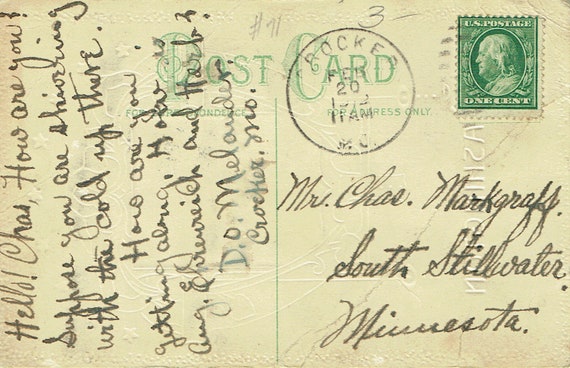 #71
3-
POST CARD
FOR CORRESPONDENCE
FOR ADDRESS ONLY.
CROCKER
FEB
20
11 AM
MO.
U.S. POSTAGE
ONE CENT
Hello! Chas, How are you?
Suppose you are shivering
with the cold up there.
How are you
getting along. How is
Aug. Ehrenreich and Herb?
D.O. Melander.
Crocker, Mo.
Mr. Chas. Markgraff.
South Stillwater
Minnesota.